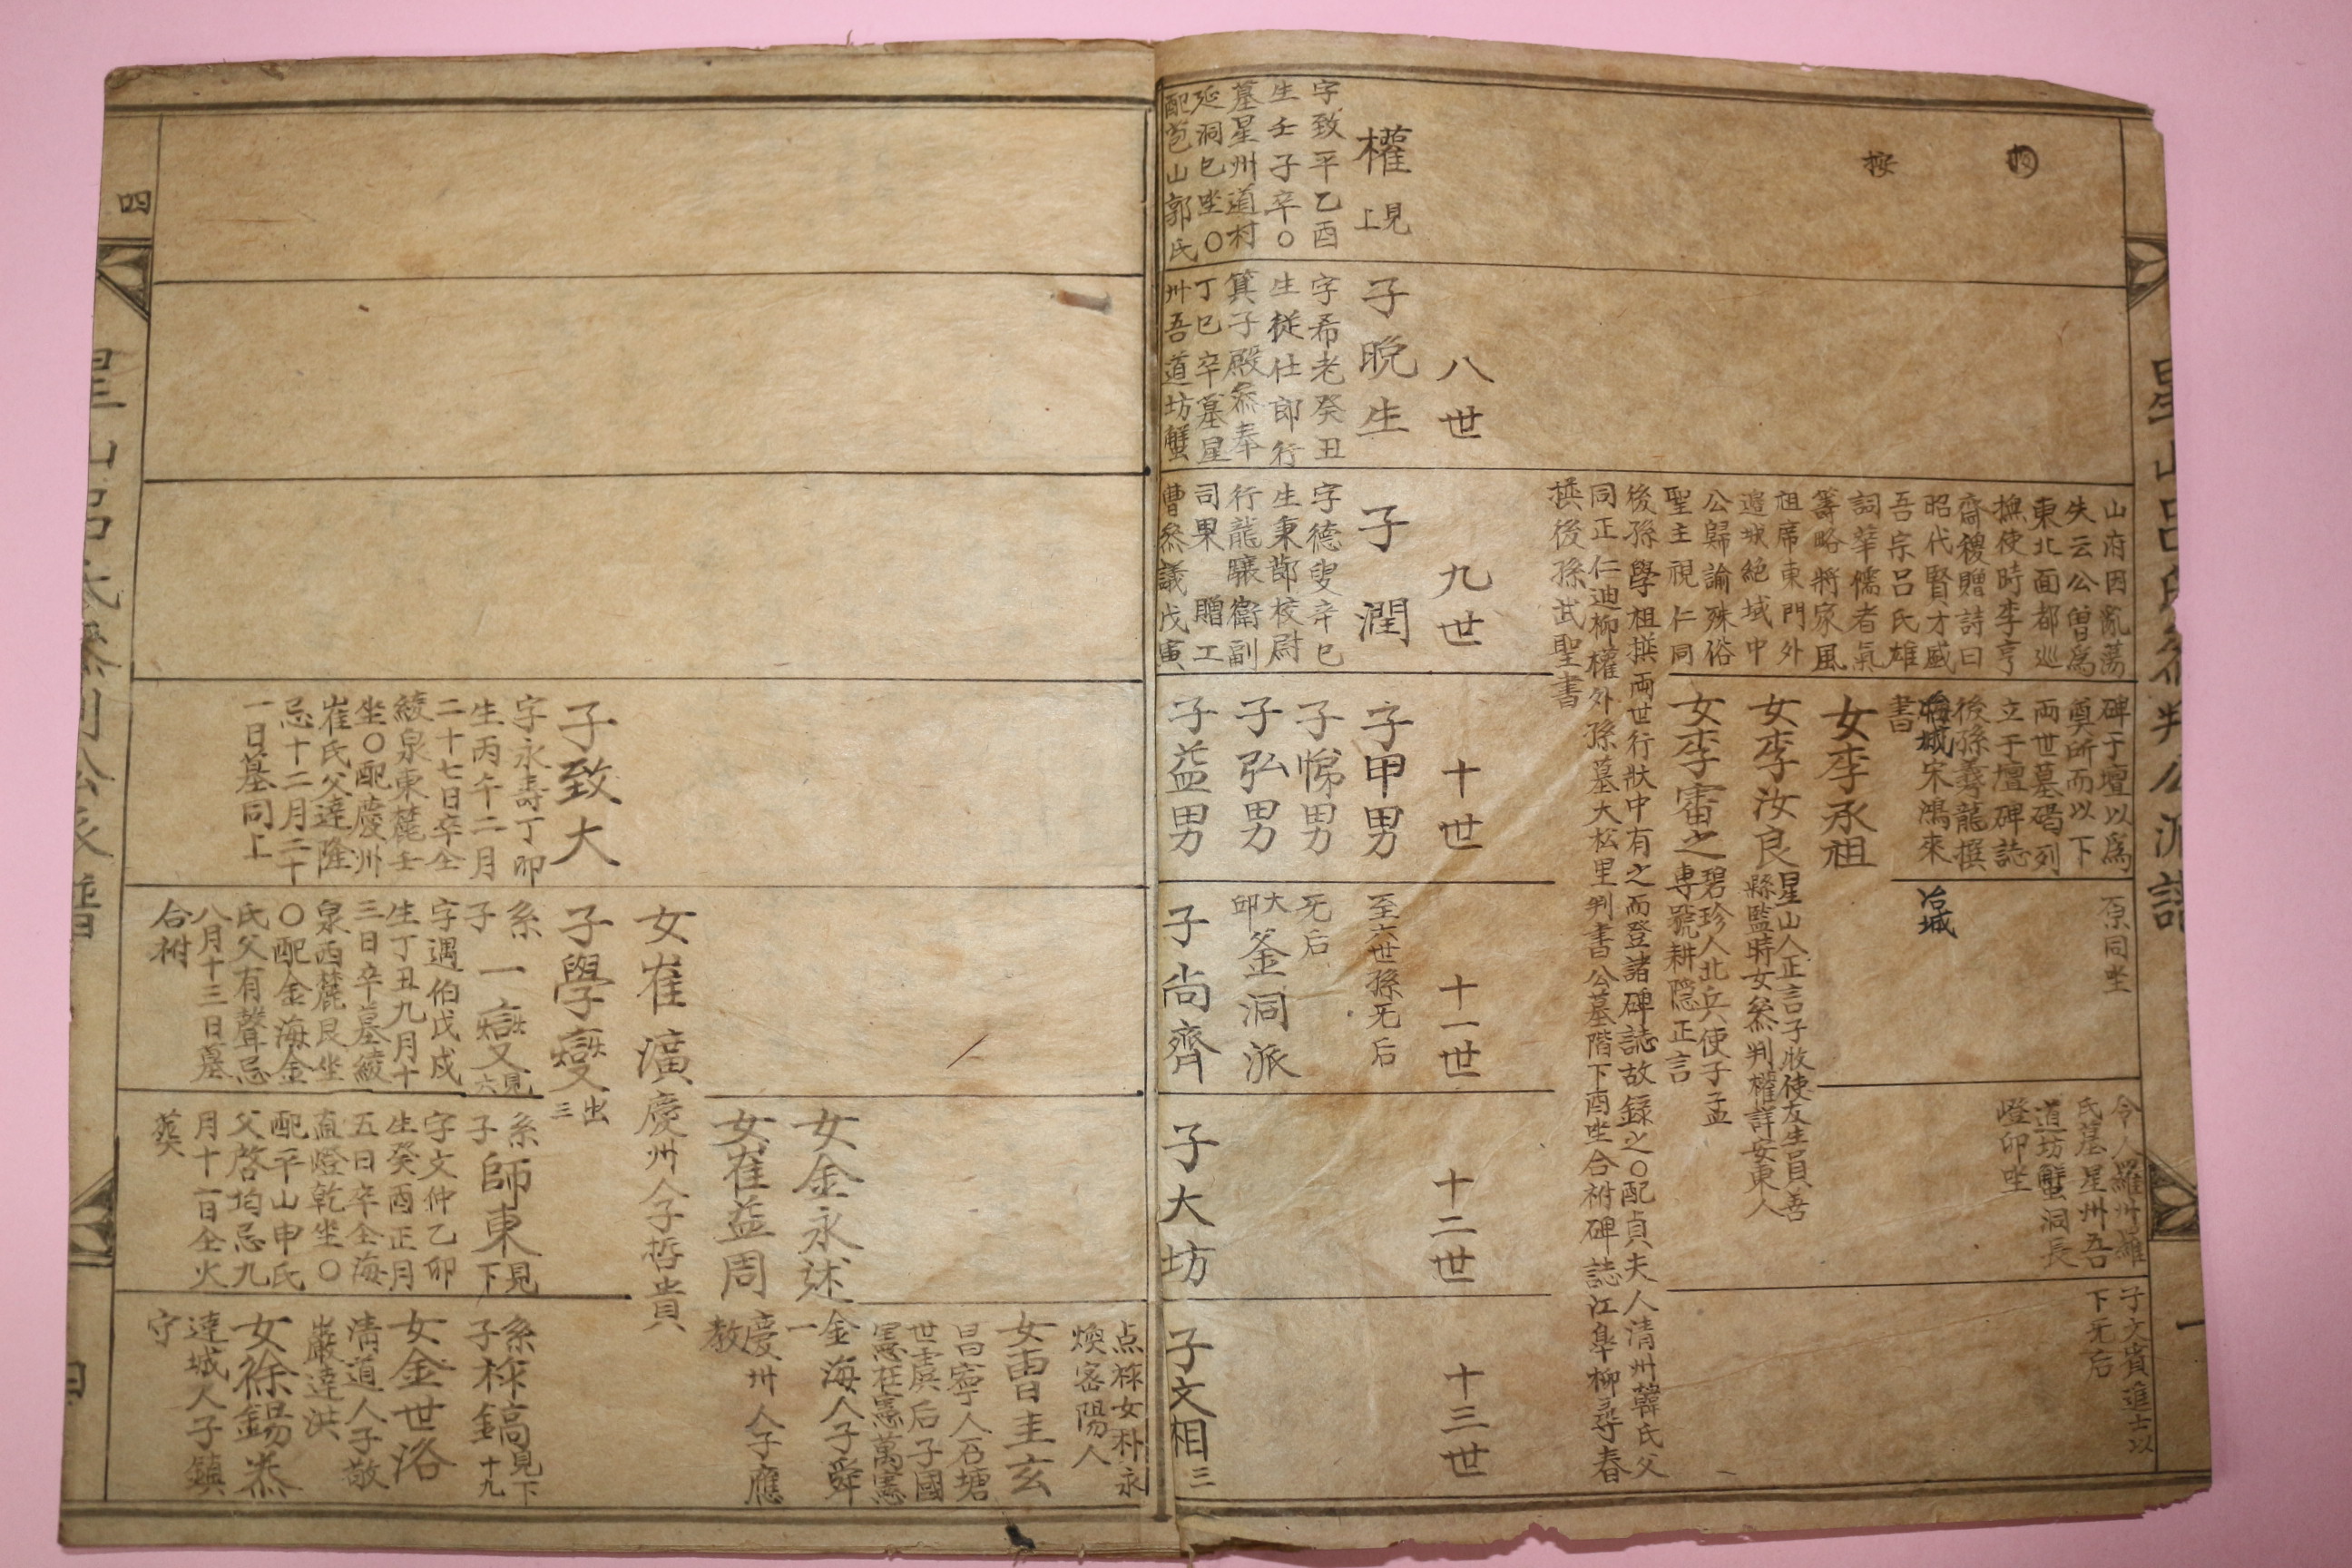 按
山府因亂蕩
失云公曽爲
東北面都巡
撫使時李亨
齋稷贈詩曰
昭代賢才盛
吾宗呂氏雄
詞華儒者氣
籌略將家風
祖席東門外
邉城絶域中
公歸論殊俗
聖主視仁同
後孫學祖撰兩世行狀中有之而登諸碑誌故録之○配貞夫人清州韓氏父
同正仁迪柳權外孫墓大松里判書公墓階下酉坐合祔碑誌江皐柳尋春
撰後孫武聖書
碑于壇以爲
奠所而以下
兩世墓碣列
立于壇碑誌
後孫義龍撰
宋鴻來
書
冶城
女李承祖
女李汝良
星山人正言子牧使友生員善
縣監時女叅判權詳安東人
女李審之
碧珍人北兵使子孟
專號耕隠正言
原同坐
令人羅州羅
氏墓星州吾
道坊蟹洞長
燈卯坐
子文賓進士以
下无后
八世
九世
十世
十一世
十二世
十三世
權
見上
字致平乙酉
生壬子卒○
墓星州道村
延洞巳坐○
配苞山郭氏
子晩生
字希老癸丑
生従仕郎行
箕子殿叅奉
丁巳卒墓星
州吾道坊蟹
子潤
字德叟辛巳
生秉節校尉
行龍驤衛副
司果贈工
曹叅議戊寅
子甲男
子悌男
子弘男
子益男
至六世孫无后
无后
大邱
釜洞派
子尚齊
子大坊
子文相三
点祿女朴永
煥密陽人
女曺圭玄
昌寧人石塘
世虞后子國
憲在憲萬憲
女金永述
金海人子舜
一
女崔益周
慶州人子應
教
女崔瀇
慶州人子哲貴
子致大
字永壽丁卯
生丙午二月
二十七日卒仝
綾泉東麓壬
坐○配慶州
崔氏父達隆
忌十二月二十
一日墓同上
子學燮
出三
系子一燮
見六
字遇伯戊戌
生丁丑九月十
三日卒墓綾
泉西麓艮坐
○配金海金
氏父有聲忌
八月十三日墓
合祔
系子師東
見下
字文仲乙卯
生癸酉正月
五日卒仝海
直燈乾坐○
配平山申氏
父啓均忌九
月十一日仝火
葬
系子祿鎬
見下十九
女金世洛
清道人子敬
巌達洪
女徐錫烝
達城人子鎮
守
四